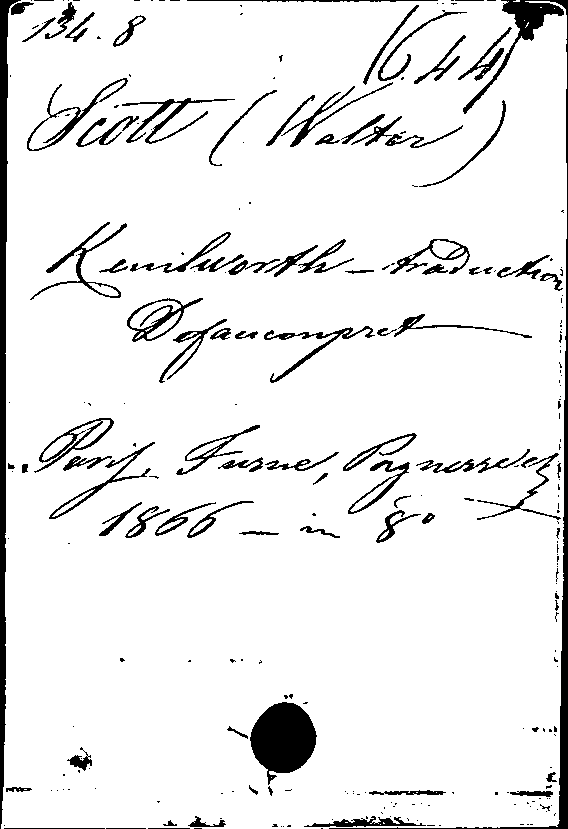 134.8
(C.44)
Scott (Walter)
Kenilworth – traduction
Defauconpret
Paris, Furne, Pagnerre et
1866 — in 8°